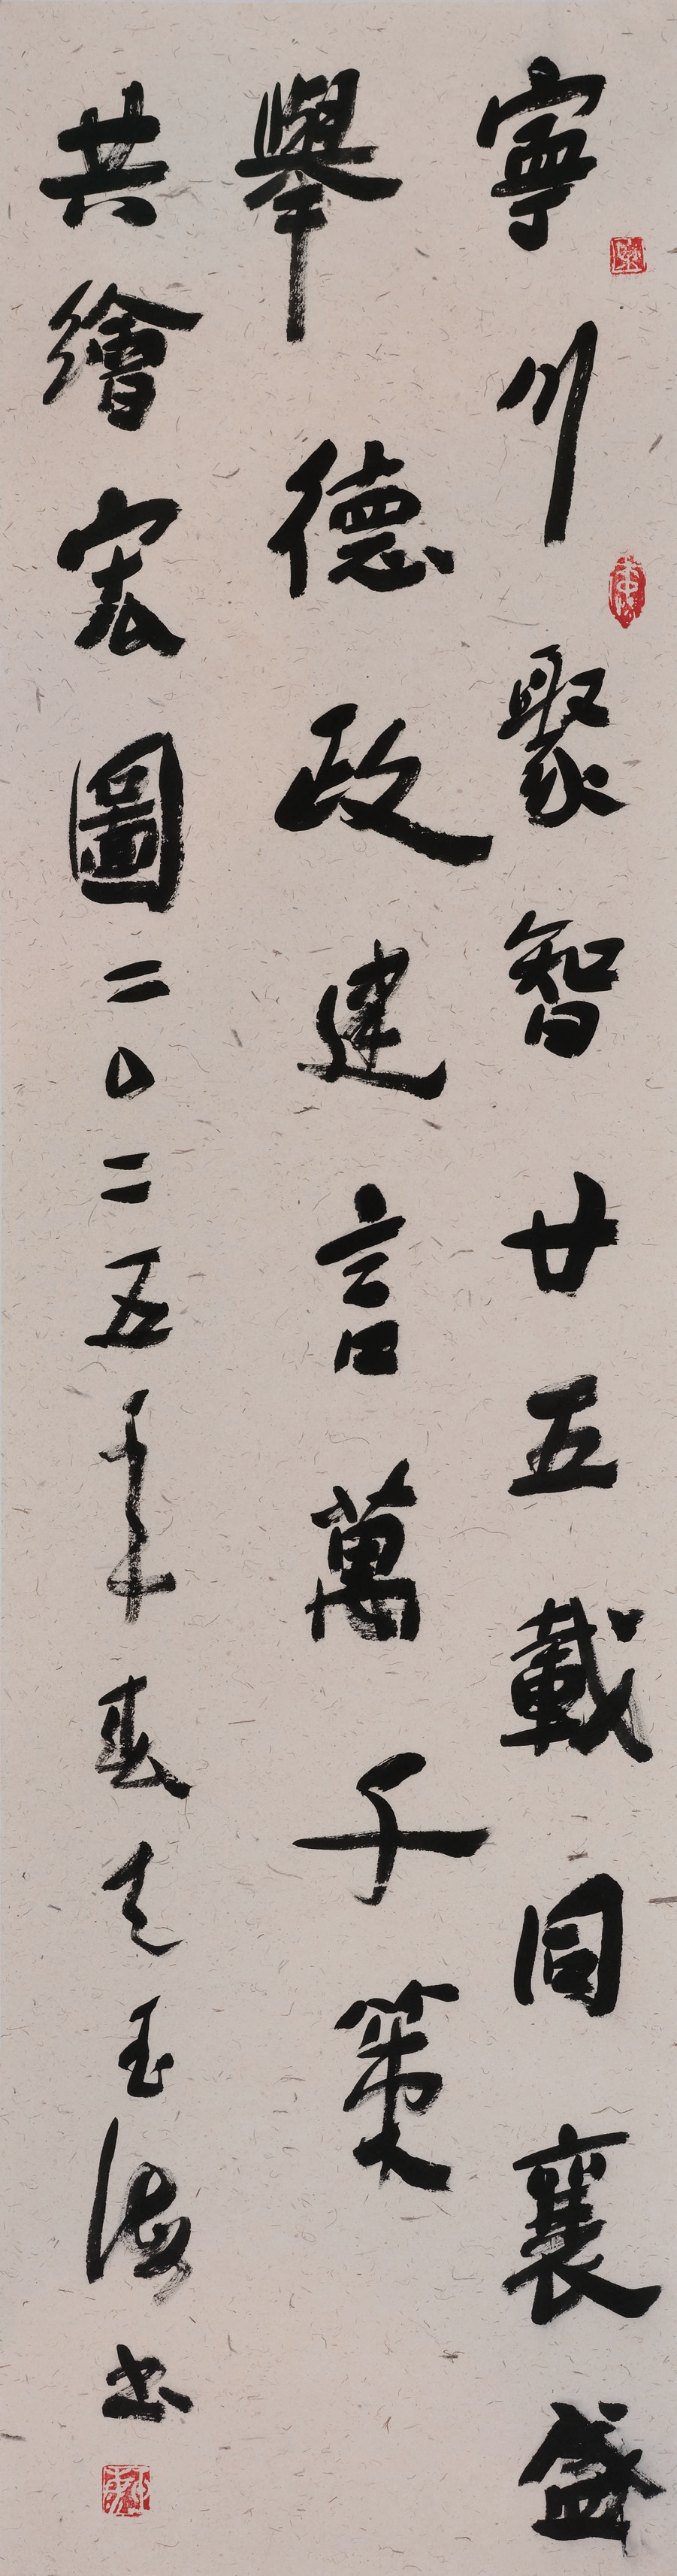 寧川聚智廿五載同襄盛
舉德政建言萬千策
共繪宏圖二〇二五年春玉海书